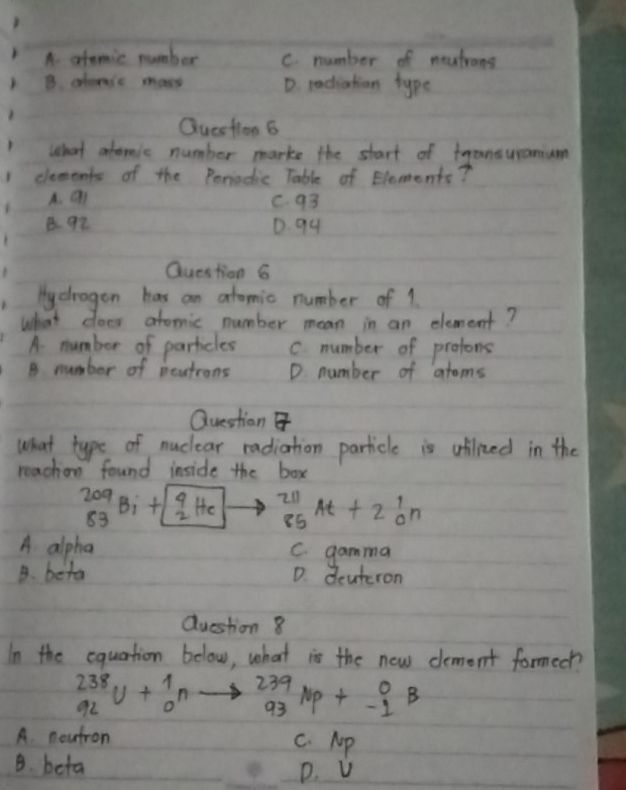 A. atomic number C. number of neutrons
B. atomic mass D. radiation type
Question 6
What atomic number marks the start of transuranium
elements of the Periodic Table of Elements?
A. 91 C. 93
B. 92 D. 94
Question 6
Hydrogen has an atomic number of 1.
What does atomic number mean in an element?
A. number of particles C. number of protons
B. number of neutrons D. number of atoms
Question 7
What type of nuclear radiation particle is utilized in the
reaction found inside the box
²⁰⁹₈₃Bi + ⁴₂He → ²¹¹₈₅At + 2 ¹₀n
A. alpha C. gamma
B. beta D. deuteron
Question 8
In the equation below, what is the new element formed?
²³⁸₉₂U + ¹₀n → ²³⁹₉₃Np + ⁰₋₁B
A. neutron C. Np
B. beta D. U